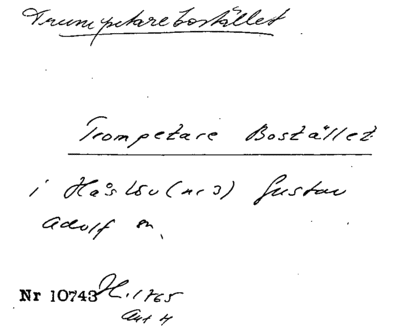 Trumpetarebostället
Trompetare Bostället
i Håslöv (nr 3) Gustav
Adolf sn.
Nr 10743 H. 1765
Akt 4